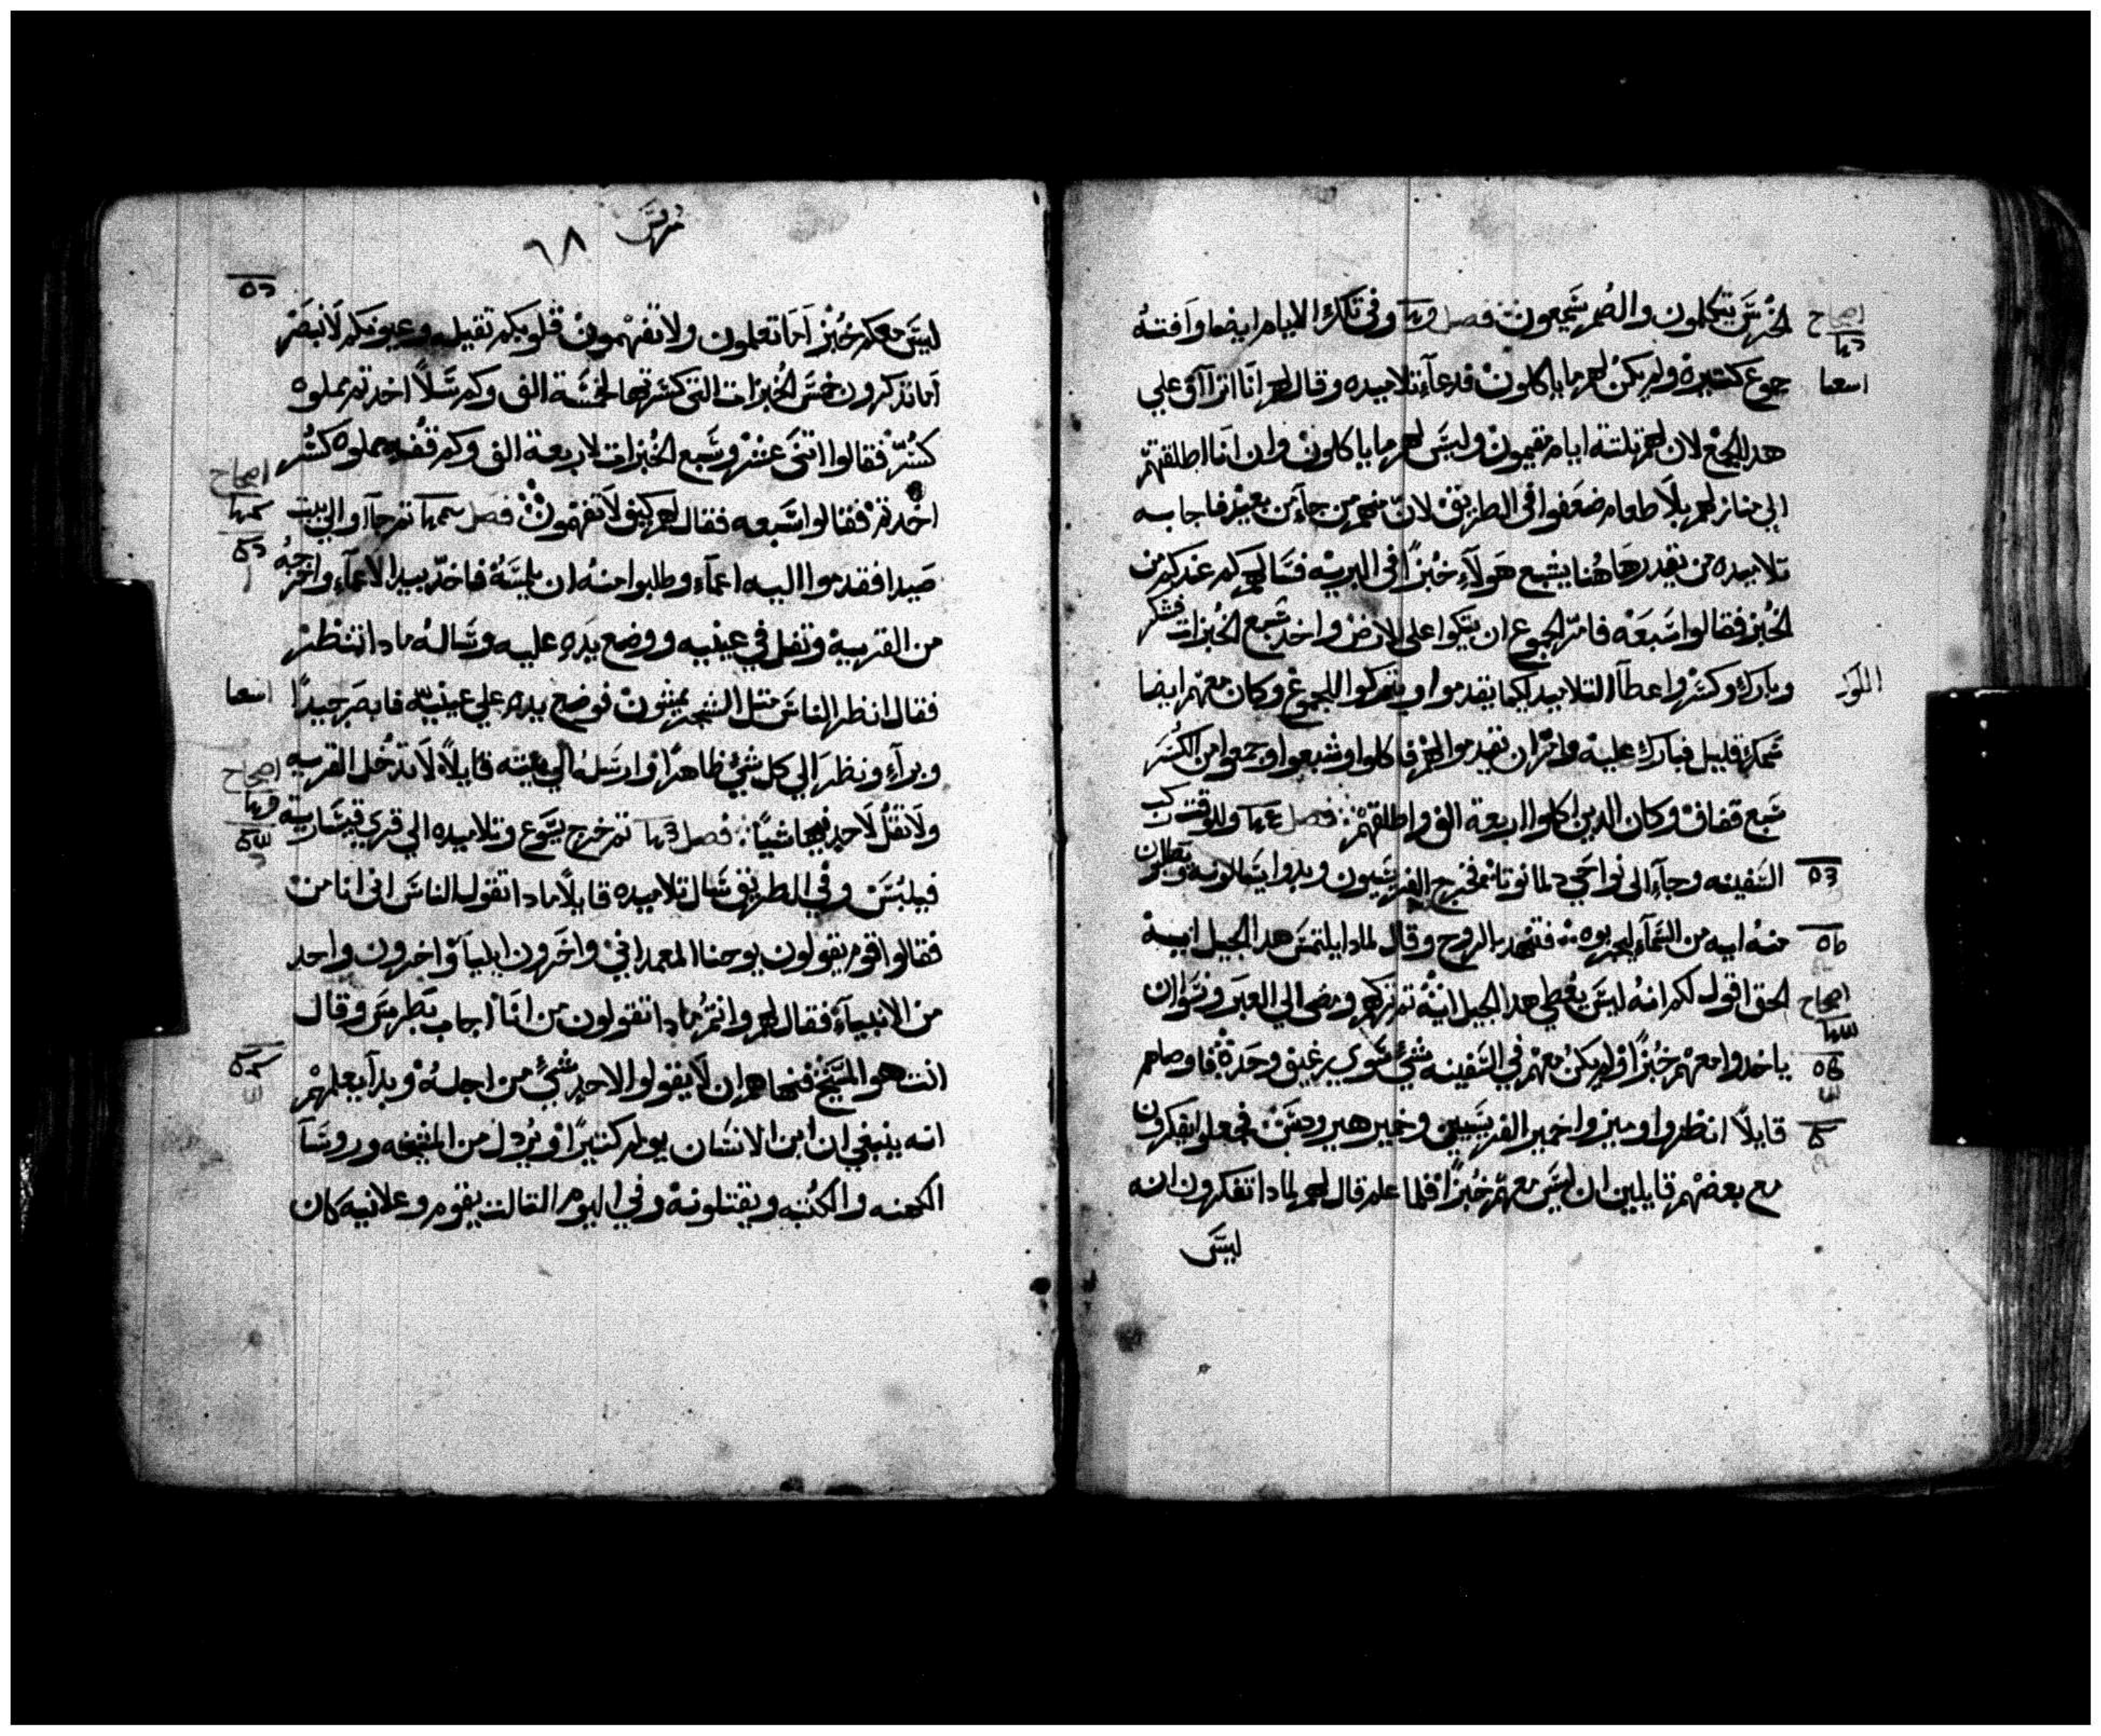 الخرس يتكلمون والصم يسمعون فصل وفي تلك الايام ايضا وافته
جموع كثيرة ولم يكن لهم ما ياكلون فدعا تلاميده وقال لهم انا اتراآف علي
هدا الجمع لان لهم تلتة ايام مقيمون وليس لهم ما ياكلون وان انا اطلقتهم
الي منازلهم بلا طعام ضعفوا في الطريق لان منهم من جآ من بعيد فاجابه
تلاميده من يقدر هاهنا يشبع هولآء خبزا في البرية فسالهم كم عندكم من
الخبز فقالوا سبعه فامر الجموع ان يتكوا علي الارض واخد سبع الخبزات فشكر
وبارك وكسر واعطآ التلاميد ليكما يقدموا ويتركوا للجموع وكان معهم ايضا
سمك قليل فبارك عليه وامر ان يقدموا لهم فاكلوا وشبعوا وجمعوا من الكسر
سبع قفاف وكان الدين اكلوا اربعة الف واطلقهم فصل وللوقت ركب
السفينه وجآء الى نواحي دلمانوتا ثم خرج الفريسيون وبدوا يسالونه ويطلبون
منه ايه من السمآء ليجربوه فتنهد بالروح وقال لمادا يلتمس هدا الجيل ايه
الحق اقول لكم انه ليس يعطي هدا الجيل ايه تم تركهم ومضى الي العبر ونسوا ان
ياخدوا معهم خبزا ولم يكن معهم في السفينه شي سوي رغيف وحده فاوصاهم
قايلا انظروا وميزوا خمير الفريسيين وخمير هيرودس فجعلوا يفكرون
مع بعضهم قايلين ان ليس معهم خبزا فلما علم قال لهم لمادا تفكرون انه
ليس
مرقس ٦٨
ليس معكم خبز اما تعلمون ولا تفهمون قلوبكم تقيله وعيونكم لا تبصر
اما تدكرون خمس الخبزات التي كسرتها لخمسة الف وكم سلا اخدتم مملوه
كسر فقالوا اتنى عشر وسبع الخبزات لاربعة الف وكم قفه مملوه كسر
اخدتم فقالوا سبعه فقال لهم كيف لا تفهمون فصل تم جآوا الي بيت
صيدا فقدموا اليه اعمآء وطلبوا منه ان يلمسه فاخد بيد الاعمآء واخرجه
من القريه وتفل في عينيه ووضع يده عليه وساله مادا تنظر
فقال انظر الناس متل الشجر يمشون فوضع يده علي عينيه فابصر جيدا
وبرآء ونظر الي كل شي ظاهرا وارسله الي بيته قايلا لا تدخل القريه
ولا تقل لاحد فيها شيا فصل تم خرج يسوع وتلاميده الي قري قيسارية
فيلبس وفي الطريق سال تلاميده قايلا مادا تقول الناس اني انا من
فقالوا قوم يقولون يوحنا المعمداني واخرون ايليا واخرون واحد
من الانبيآء فقال لهم وانتم مادا تقولون من انا اجاب بطرس وقال
انت هو المسيح فنهاهم ان لا يقولوا لاحد شي من اجله وبدآ يعلمهم
انه ينبغي ان ابن الانسان يولم كتيرا ويردل من المشيخه وروسآ
الكهنه والكتبه ويقتلونه وفي اليوم التالت يقوم وعلانيه كان